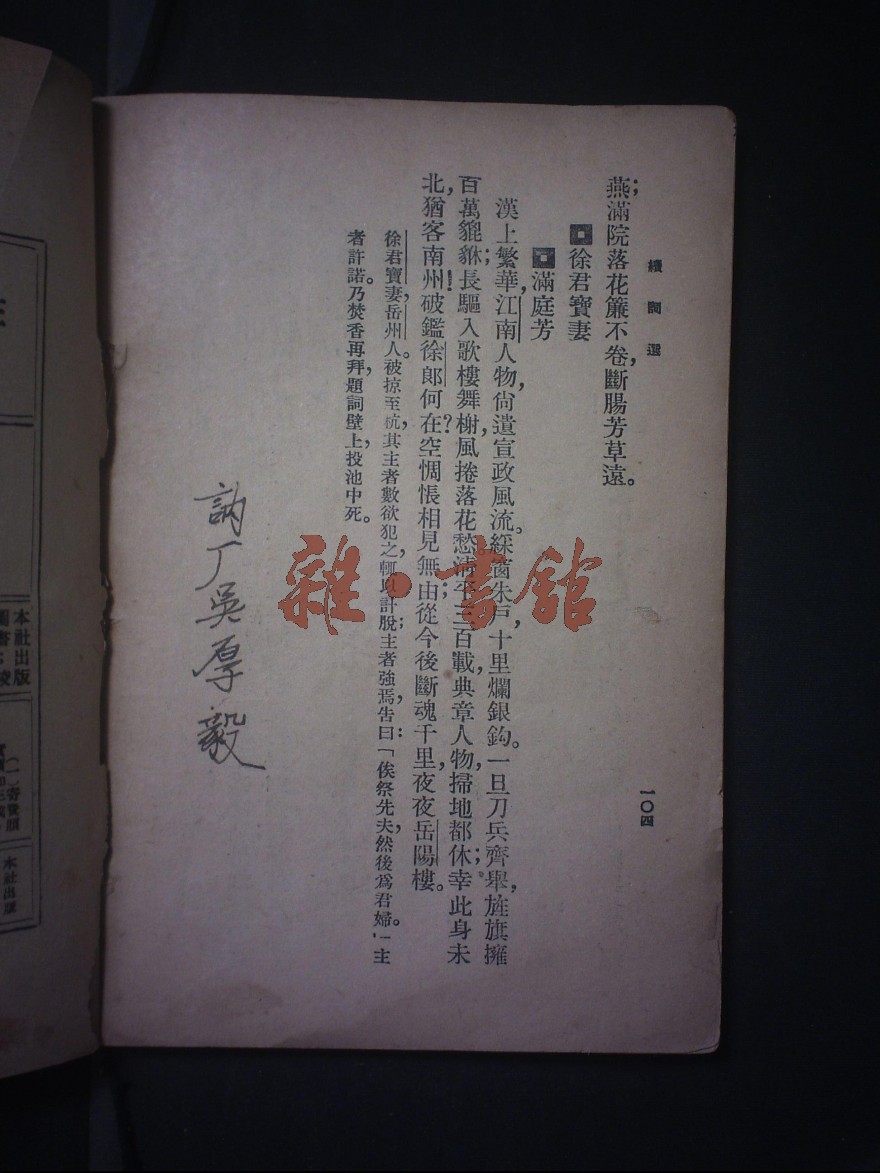 續詞選
一〇四
燕;滿院落花簾不卷,斷腸芳草遠。
徐君寶妻
滿庭芳
漢上繁華,江南人物,尙遺宣政風流。綵窗朱戶,十里爛銀鈎。一旦刀兵齊舉,旌旗擁
百萬貔貅;長驅入歌樓舞榭,風捲落花愁。清平三百載,典章人物,掃地都休;幸此身未
北,猶客南州!破鑑徐郎何在?空惆悵相見無由;從今後斷魂千里,夜夜岳陽樓。
徐君寶妻,岳州人。被掠至杭,其主者數欲犯之,輒以計脫;主者強焉,告曰:「俟祭先夫,然後爲君婦。」主
者許諾。乃焚香再拜,題詞壁上,投池中死。
訥厂吳厚毅
雜·書館
本社出版
本社出版